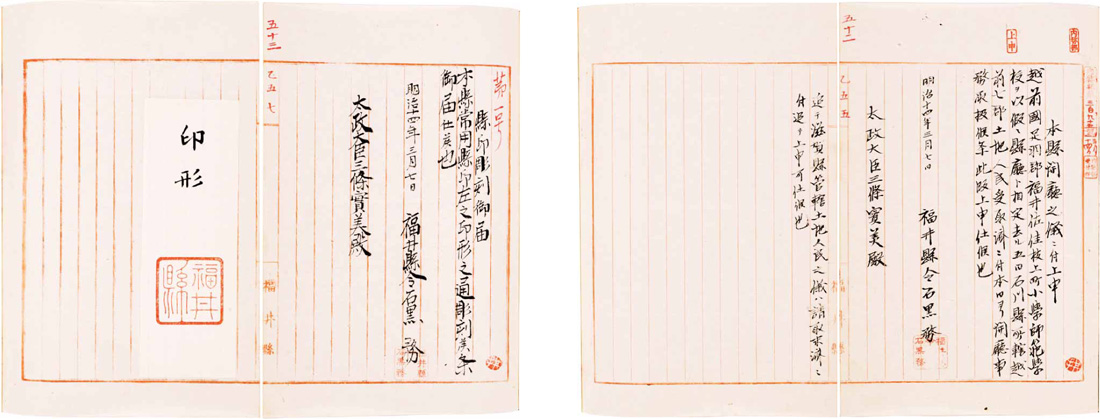 上申
本縣開廳之儀ニ付上申
越前國足羽郡福井佐佳枝上町小學師範學
校ヲ以假ニ縣廳ト相定去ル五日石川縣所轄越
前七郡土地人民受取済ニ付本日ヨリ開廳事
務取扱候条此段上申仕候也
明治十四年三月七日
福井縣令石黒務
太政大臣三條實美殿
追テ滋賀縣管轄土地人民之儀ハ請取未済ニ
付追テ上申可仕候也
五十二
乙五五
第一号
縣印彫刻御届
本縣常用縣印左之印形之通彫刻候条
御届仕候也
明治十四年三月七日
福井縣令石黒務
太政大臣三條實美殿
五十三
乙五七
福井縣
印形
福井縣